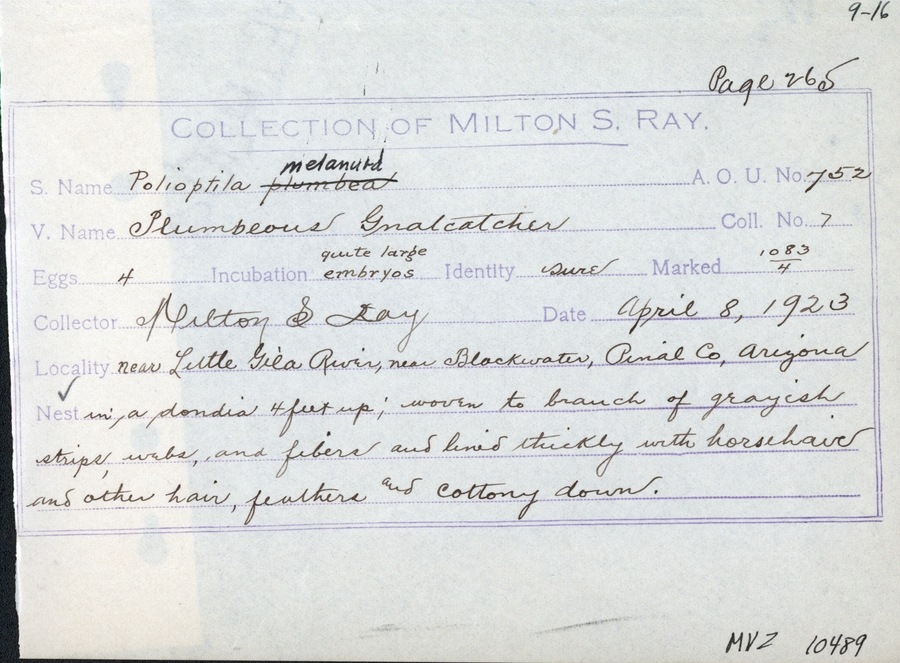 9-16
Page 265
COLLECTION OF MILTON S. RAY.
melanura
S. Name Polioptila plumbea A. O. U. No. 752
V. Name Plumbeous Gnatcatcher Coll. No. 7
quite large 1083
Eggs 4 Incubation embryos Identity sure Marked 4
Collector Milton S Ray Date April 8, 1923
Locality near Little Gila River, near Blackwater, Pinal Co, Arizona
✓
Nest in a dondia 4 feet up; woven to branch of grayish
strips, webs, and fibers and lined thickly with horsehair
and other hair, feathers and cottony down.
MVZ 10489